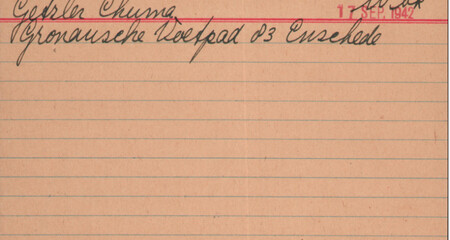 Getzler Chuma
17 SEP. 1942
Gronausche Voetpad 83 Enschede